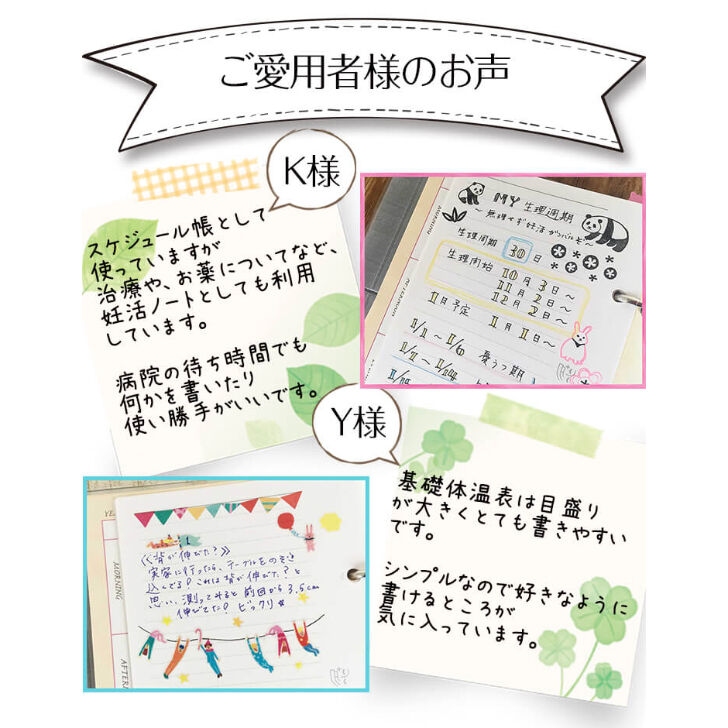 ご愛用者様のお声
K様
スケジュール帳として
使っていますが
治療や、お薬についてなど、
妊活ノートとしても利用
しています。
病院の待ち時間でも
何かを書いたり
使い勝手がいいです。
MY 生理週期
～無理せず妊活がんばルぞ～
生理周期 30 日
生理開始 10月3日～
11月2日～
12月2日～
1月予定 1月1日～
1/1～1/6 憂うつ期
Y様
基礎体温表は目盛り
が大きくとても書きやすい
です。
シンプルなので好きなように
書けるところが
気に入っています。
MORNING
《背が伸びた?》
実家に行ったら、テーブルをのぞき
込んでる!これは背が伸びた?と
思い、測ってみると前回から3.5cm
伸びてた!ビックリ